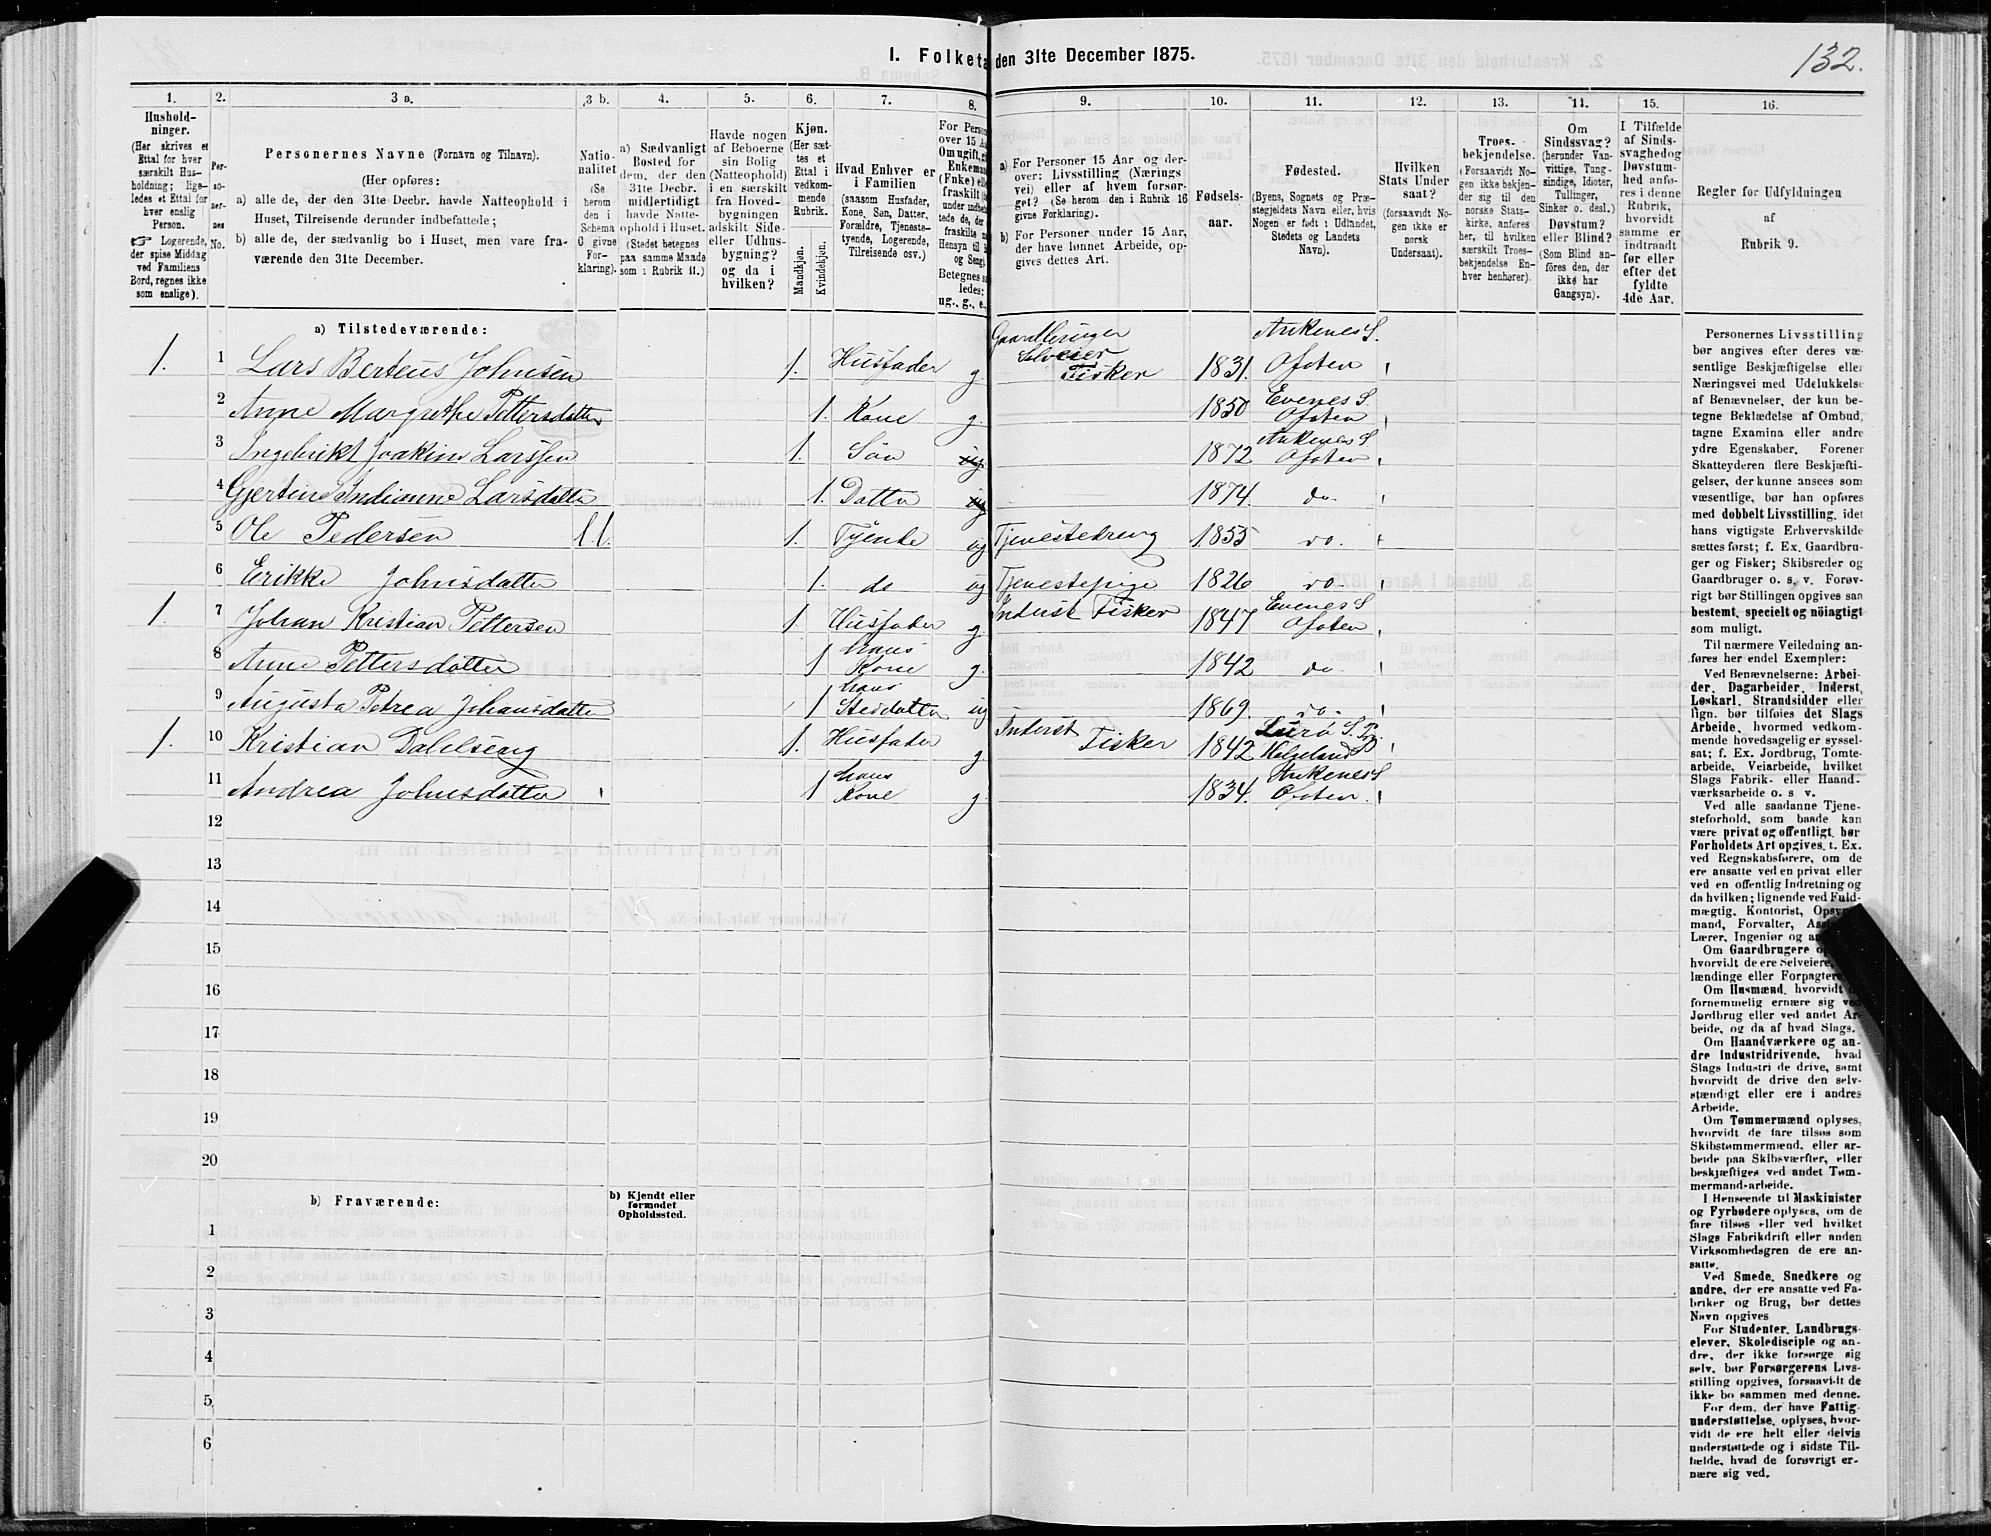 132.
I. Folketa den 31te December 1875.
1. 2. 3 a. 3 b. 4. 5. 6. 7. 8. 9. 10. 11. 12. 13. 14. 15. 16.
Hushold-
ninger.
(Her skrives et
Ettal for hver
særskilt Hus-
holdning; lige-
ledes et Ettal for
hver enslig
Person.
☞ Logerende,
der spise Middag
ved Familiens
Bord, regnes ikke
som enslige).
Per-
so-
ner-
nes
No.
Personernes Navne (Fornavn og Tilnavn).
(Her opføres:
a) alle de, der den 31te Decbr. havde Natteophold i
Huset, Tilreisende derunder indbefattede;
b) alle de, der sædvanlig bo i Huset, men vare fra-
værende den 31te December.
Natio-
nalitet
(Se
herom
den i
Schema
C givne
For-
klaring).
a) Sædvanligt
Bosted for
dem, der den
31te Decbr.
midlertidigt
havde Natte-
ophold i Huset.
(Stedet betegnes
paa samme Maade
som i Rubrik 11.)
Havde nogen
af Beboerne
sin Bolig
(Natteophold)
i en særskilt
fra Hoved-
bygningen
adskilt Side-
eller Udhus-
bygning?
og da i
hvilken?
Kjøn.
(Her sæt-
tes et
Ettal i
vedkom-
mende
Rubrik.
Mandkjøn.
Kvindekjøn.
Hvad Enhver er
i Familien
(saasom Husfader,
Kone, Søn, Datter,
Forældre, Tjeneste-
tyende, Logerende,
Tilreisende osv.)
For Person
over 15 A
Om ugift, g
Enkeman
(Enke) ell
fraskilt
under indbefat
tede de, der
fraskilte
Hensyn til
og Seng).
Betegnes s
ledes:
ug., g., e.,
a) For Personer 15 Aar og der-
over: Livsstilling (Nærings
vei) eller af hvem forsør-
get? (Se herom den i Rubrik 16
givne Forklaring).
b) For Personer under 15 Aar,
der have lønnet Arbeide, op-
gives dettes Art.
Fødsels-
aar.
Fødested.
(Byens, Sognets og Præ-
stegjeldets Navn eller, hvis
Nogen er født i Udlandet,
Stedets og Landets
Navn).
Hvilken
Stats Under
saat?
(forsaavidt No-
gen ikke er
norsk
Undersaat).
Troes-
bekjendelse.
(Forsaavidt No-
gen ikke bekjen-
der sig til den
norske Stats-
kirke, anføres
her, til hvilken
særskilt Troes-
bekjendelse En-
hver henhører).
Om
Sindssvag?
(herunder Van-
vittige, Tung-
sindige, Idioter,
Tullinger,
Sinker o. desl.)
Døvstum?
eller Blind?
(Som Blind an-
føres den, der
ikke har
Gangsyn).
I Tilfælde
af Sinds-
svaghedog
Døvstum-
hed anfø-
res i denne
Rubrik,
hvorvidt
samme er
indtraadt
før eller
efter det
fyldte
4de Aar.
Regler for Udfyldningen
af
Rubrik 9.
a) Tilstedeværende:
1. 1 Lars Berteus Johnsen 1. Husfader g. Gaardbruger Selveier Fisker 1831. Ankenes S. Ofoten
2 Anne Margrethe Pettersdatter 1. Kone g. 1850 Evenes S. Ofoten
3 Ingebrikt Joakim Larssen 1. Søn ug 1872 Ankenes S Ofoten
4 Gjertine Indianne Larsdatter 1. Datter ug 1874. do
5 Ole Pedersen l.l. 1. Tyende ug Tjenestedreng 1855 do.
6 Erikke Johnsdatter 1. do ug Tjenestepige 1826 do
1. 7 Johan Kristian Pettersen 1 Husfader g. Inderst Fisker 1847 Evenes S Ofoten
8 Anne Pettersdatter 1 hans Kone g. 1842 do.
9 Augusta Petrea Johansdatter 1 hans Steddatter ug 1869. do.
1. 10 Kristian Dahlseng 1. Husfader g Inderst Fisker 1842 Lurø S. Pg. Helgeland
11 Andrea Johnsdatter 1 hans Kone g. 1834. Ankenes S Ofoten
12
13
14
15
16
17
18
19
20
b) Fraværende:
b) Kjendt eller
formodet
Opholdssted.
1
2
3
4
5
6
Personernes Livsstilling
bør angives efter deres væ-
sentlige Beskjæftigelse eller
Næringsvei med Udelukkelse
af Benævnelser, der kun be-
tegne Beklædelse af Ombud,
tagne Examina eller andre
ydre Egenskaber. Forener
Skatteyderen flere Beskjæfti-
gelser, der kunne ansees som
væsentlige, bør han opføres
med dobbelt Livsstilling, idet
hans vigtigste Erhvervskilde
sættes først; f. Ex. Gaardbru-
ger og Fisker; Skibsreder og
Gaardbruger o. s. v. Forøv-
rigt bør Stillingen opgives saa
bestemt, specielt og nöiagtigt
som muligt.
Til nærmere Veiledning an-
føres her endel Exempler:
Ved Benævnelserne: Arbei-
der, Dagarbeider, Inderst,
Løskarl, Strandsidder eller
lign. bør tilføies det Slags
Arbeide, hvormed vedkom-
mende hovedsagelig er syssel-
sat; f. Ex. Jordbrug, Tomte-
arbeide, Veiarbeide, hvilket
Slags Fabrik- eller Haand-
værksarbeide o. s v.
Ved alle saadanne Tjene-
steforhold, som baade kan
være privat og offentligt, bør
Forholdets Art opgives, t. Ex.
ved Regnskabsførere, om de
ere ansatte ved en privat eller
ved en offentlig Indretning og
da hvilken; lignende ved Fuld-
mægtig, Kontorist, Opsy
mand, Forvalter, As
Lærer, Ingeniør og a
Om Gaardbrugere o
hvorvidt de ere Selveiere,
lændinge eller Forpagtere
Om Husmænd, hvorvidt
fornemmelig ernære sig ved
Jordbrug eller ved andet Ar-
beide, og da af hvad Slags.
Om Haandværkere og an-
dre Industridrivende, hvad
Slags Industri de drive, samt
hvorvidt de drive den selv-
stændigt eller ere i andres
Arbeide.
Om Tømmermænd oplyses,
hvorvidt de fare tilsøs som
Skibstømmermænd, eller ar-
beide paa Skibsværfter, eller
beskjæftiges ved andet Tøm-
mermand-arbeide.
I Henseende til Maskinister
og Fyrbødere oplyses, om de
fare tilsøs eller ved hvilket
Slags Fabrikdrift eller anden
Virksomhedsgren de ere an-
satte.
Ved Smede, Snedkere og
andre, der ere ansatte ved Fa-
briker og Brug, bør dettes
Navn opgives
For Studenter, Landbrugs-
elever, Skoledisciple og an-
dre, der ikke forsørge sig
selv, bør Forsørgerens Livs-
stilling opgives, forsaavidt de
ikke bo sammen med denne.
For dem, der have Fattig-
understøttelse, oplyses, hvor-
vidt de ere helt eller delvis
understøttede og i sidste Til-
fælde, hvad de forøvrigt er-
nære sig ved.